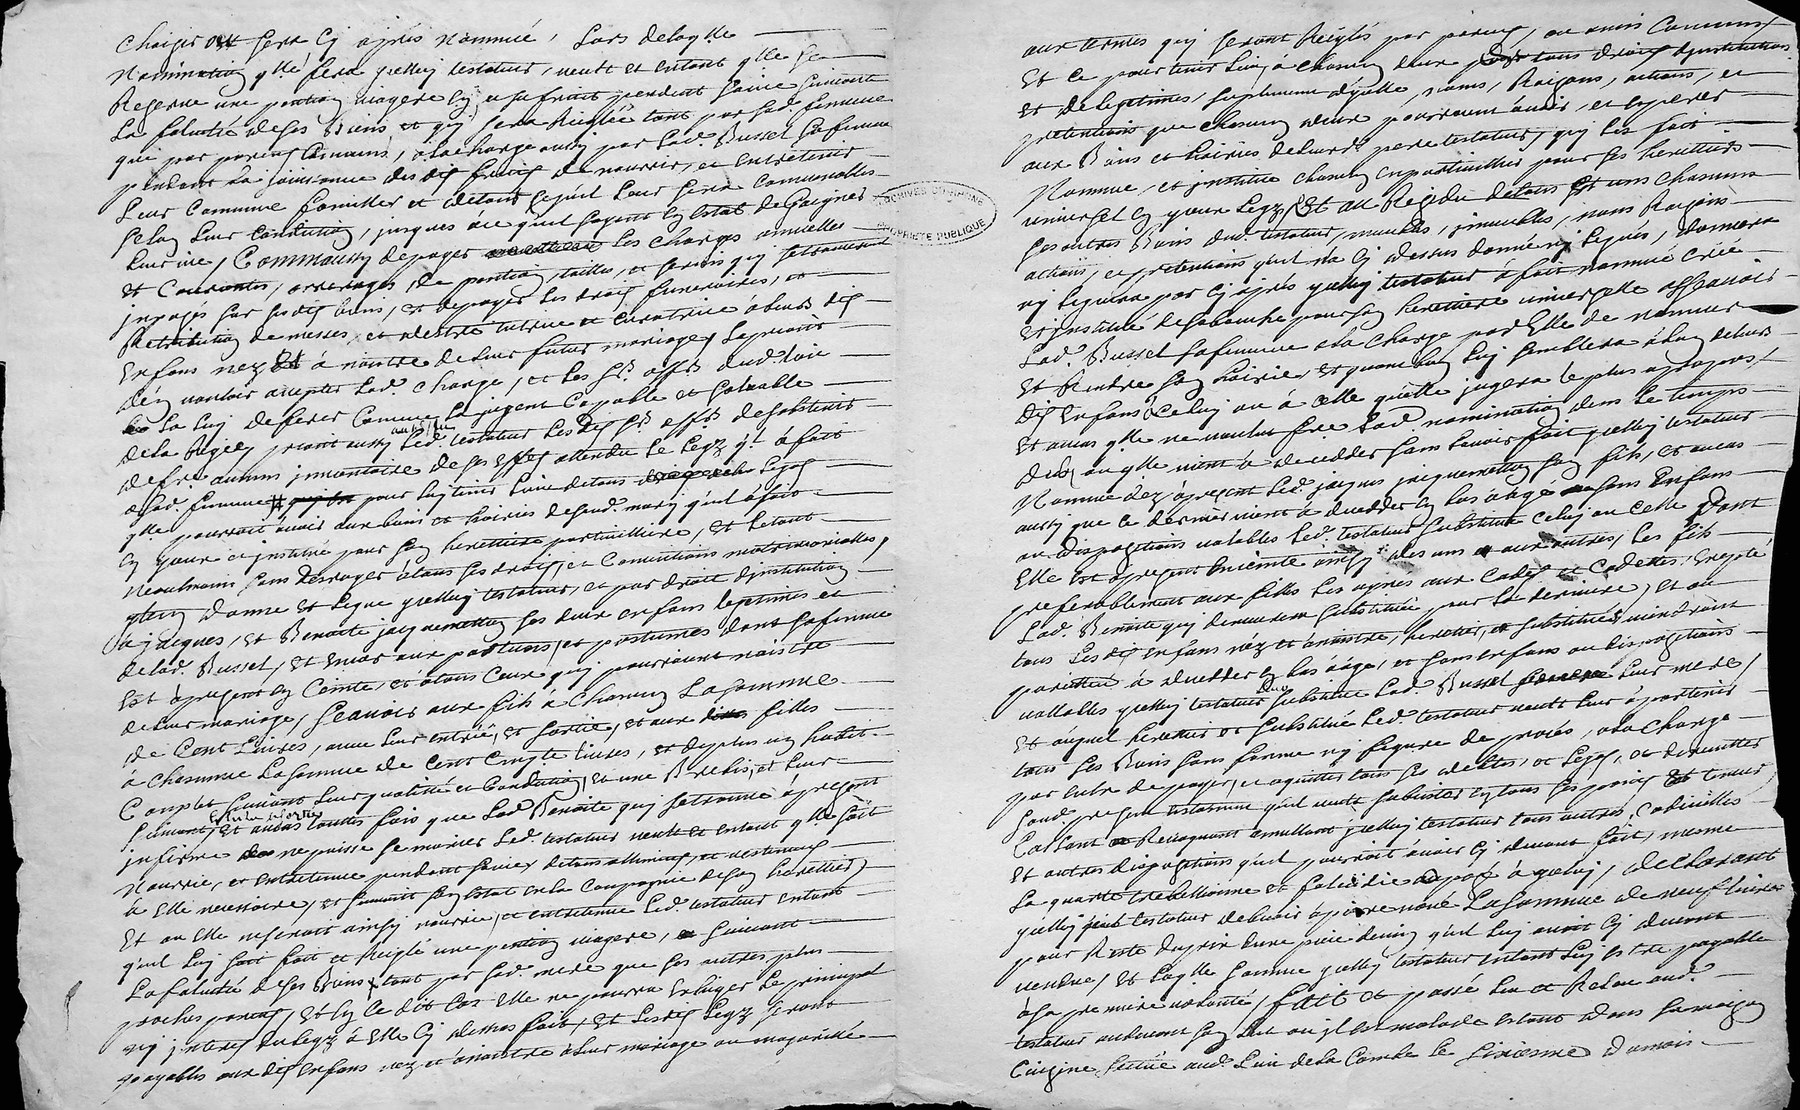 choisir ou sera cy après nommée, Lors delaq.lle
Nomination q.lle sera yceluy testateur, veult et entent q.lle se
Reserve une pention viagere en sa fruit pendent sa vie suivant
La faluité de ses Biens et qui sera Reiglée tant par sad. femme
que par parens Comuns, à la charge aussy par Lad. Busset sa femme
pendant la jouissance des dis fruits de nourrir, et entretenir
Leur Commune famillier et detout ce quil Leur sera Convenables
selon Leur Condution, jusques à ce quil soyent en Estat de Gaigner
Leur vie, Comm aussy de payer les charges annuelles
et Courantes, arrerages, de pention, tailles, et servis qui se trouveront
inpayés sur sesdis biens, et de payer les droits funeraires, et
Retribution de messes, et destre tutrice et curatrice à leurs dis
Enfans nez Et à naitre de leur futur mariage, La priant
d'en vouloir accepter Lad. charge, et les s.rs off.rs dud. Lieu
La luy deferer Comme la jugent Capable et solvable
de la Regie, priant aussy Led. testateur Les dis s.rs off.rs de sabstenir
aussy
de fre aucuns jnventaire de ses effets attendu le Legz q.l à fait
a sad. femme # pour luy tenir Lieu de tous Legas
q.lle pourroit avoir aux biens et hoiries de sond. mary qu'il à fait
en yceux et jnstitué pour son heretiere particulliere, et Le tout
Neaulmoins sans desroger à tous ses droits, et Conventions matrimonialles,
plus donne et Legue yceluy testateur, et par droit d'jnstitution
à jacques, et Benoite jacquemetton ses deux enfans legitimes et
de lad. Busset, et encor aux posthumes, et postumes dont sa femme
est à present en Ceinte, et à tous Ceux qui pourroient naistre
de leur mariage, scavoir aux fils à Chacun La somme
de Cent Livres, avec leur entrée, et sortie, et aux filles
à chacunne La somme de Cent Cinqte livres, et de plus un habit
Complet suivant Leur qualitée et Condution, et une Brebis, et leur
Entrée et sortie
suivant, et aucas toutes fois que Lad. Benoite qui se trouve à present
infirme ne puisse se marier Led. testateur veult et entent q.lle soit
Nourrie, et entretenue pendant sa vie, de tous allimens, et vestemens
à Elle necessaire, et suivant son Estat en la Compagnie de son heretier,
Et ou Elle ne seroit ainsy nourrie, et entretenue Led. testateur entent
qu'il Luy soit fait et Reiglé une pention viagere, suivant
La faluité de ses Biens, tant par sad. mere que ses autres plus
proches parens, Et en Ce dit Cas Elle ne pourra Exhiger Le principal
ny jnterets du Legz à Elle cy dessus fait, Et Lesdis Legz seront
payables aux dis enfans nez et à naistre à leur mariage ou majoritée
aux termes qui seront Reiglés par parens, ou amis Communs
Et ce pour tenir Lieu à chacun deux pour tous droits d'jnstitution
et de legitimes, suplement d'ycelle, noms, Raisons, actions, et
pretentions que chacun deux pourroient avoir, et esperer
aux Biens et hoiries de leurd. pere testateur, qui les fait
Nomme, et jnstitue chacun en particullier pour ses heretiers
universel en yceux Legz, Et au Residu de tous Et uns chacuns
ses autres Biens dud. testateur, meubles, jmeubles, noms Raisons
actions, et pretentions quil na Cy dessus donné ny Legués, donnera
ny leguera par Cy après yceluy testateur à fait nommé créé
Et jnstitué de sa bouche pour son heretiere universelle assçavoir
Lad. Busset sa femme à la charge par Elle de nommer
Et Rendre son hoirie, Et quand bon Luy semblera à lun de leurs
dis Enfans Celuy ou à Celle quelle jugera le plus à propos,
et aucas q.lle ne voulut fre lad. nomination dans le temps
dub, ou q.lle vient à deceder sans l'avoir fait yceluy testateur
Nomme déz à present Led. jacques jacquemetton son fils, et aucas
aussy que ce dernier vient à deceder en bas aagé sans Enfans
ou dispositions valables Led. testateur substitue Celuy ou Celle dont
Elle est à present Enceinte ainsy des uns aux autres, les fils
preferablement aux filles Les aynés aux Cadets et Cadettes, Excepté
Lad. Benoite qui demeurera substituée pour La derniere, et ou
tous Lesdis enfans néz et à naistre, heretier, et substitués viendroint
pareillem.t à deceder en bas aage, et sans enfans ou dispositions
vallables yceluy testateur substitue Lad. Busset Leur mere,
Et auquel heretier et substitué Led. testateur veult Leur apartenir
tous ses Biens sans forme ny figure de procés, à la charge
par eulx de payer, et aquitter tous ses debtes, et Legs, et de remetter
sond. present testament quil veult subsister en tous ses points Et tenur,
Cassant Revoquant annullant yceluy testateur tous autres, Codicilles
Et autres dispositions qu'il pourroit avoir Cy devant fait, mesme
La quarte trebellianne et falcidie à yceluy, declarant
yceluy testateur debvoir à pierre La somme de neuf livres
pour Reste du prix dune piece de vin qu'il luy avoit Cy devant
vendue, Et Laq.lle somme yceluy testateur entent Luy estre payable
à sa premiere volonté, fait et passé leu et Releu aud.
testateur audevant son Lict ou jl est malade estant dans sa maison
Cuizine scituée aud. Lieu de la Combe Le sixiesme damois
ARCHIVES
PROPRIETE PUBLIQUE